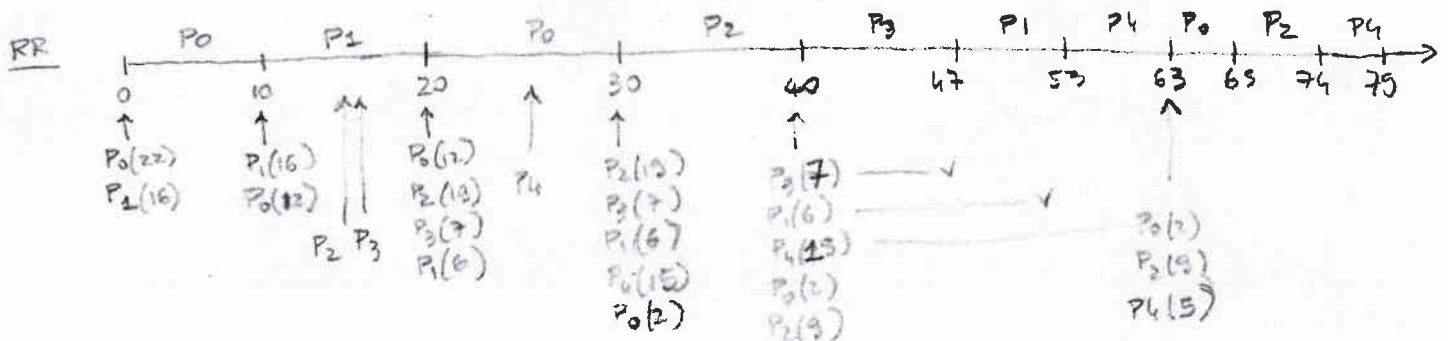 RR P0 P1 P0 P2 P3 P1 P4 P0 P2 P4
0 10 20 30 40 47 53 63 65 74 79
P0(22) P1(16) P0(12) P4 P2(19) P3(7)
P1(16) P0(12) P2(19) P3(7) P1(6)
P3(7) P1(6) P0(2)
P2 P3 P1(6) P4(15) P0(2) P2(9)
P0(2) P2(9) P4(5)